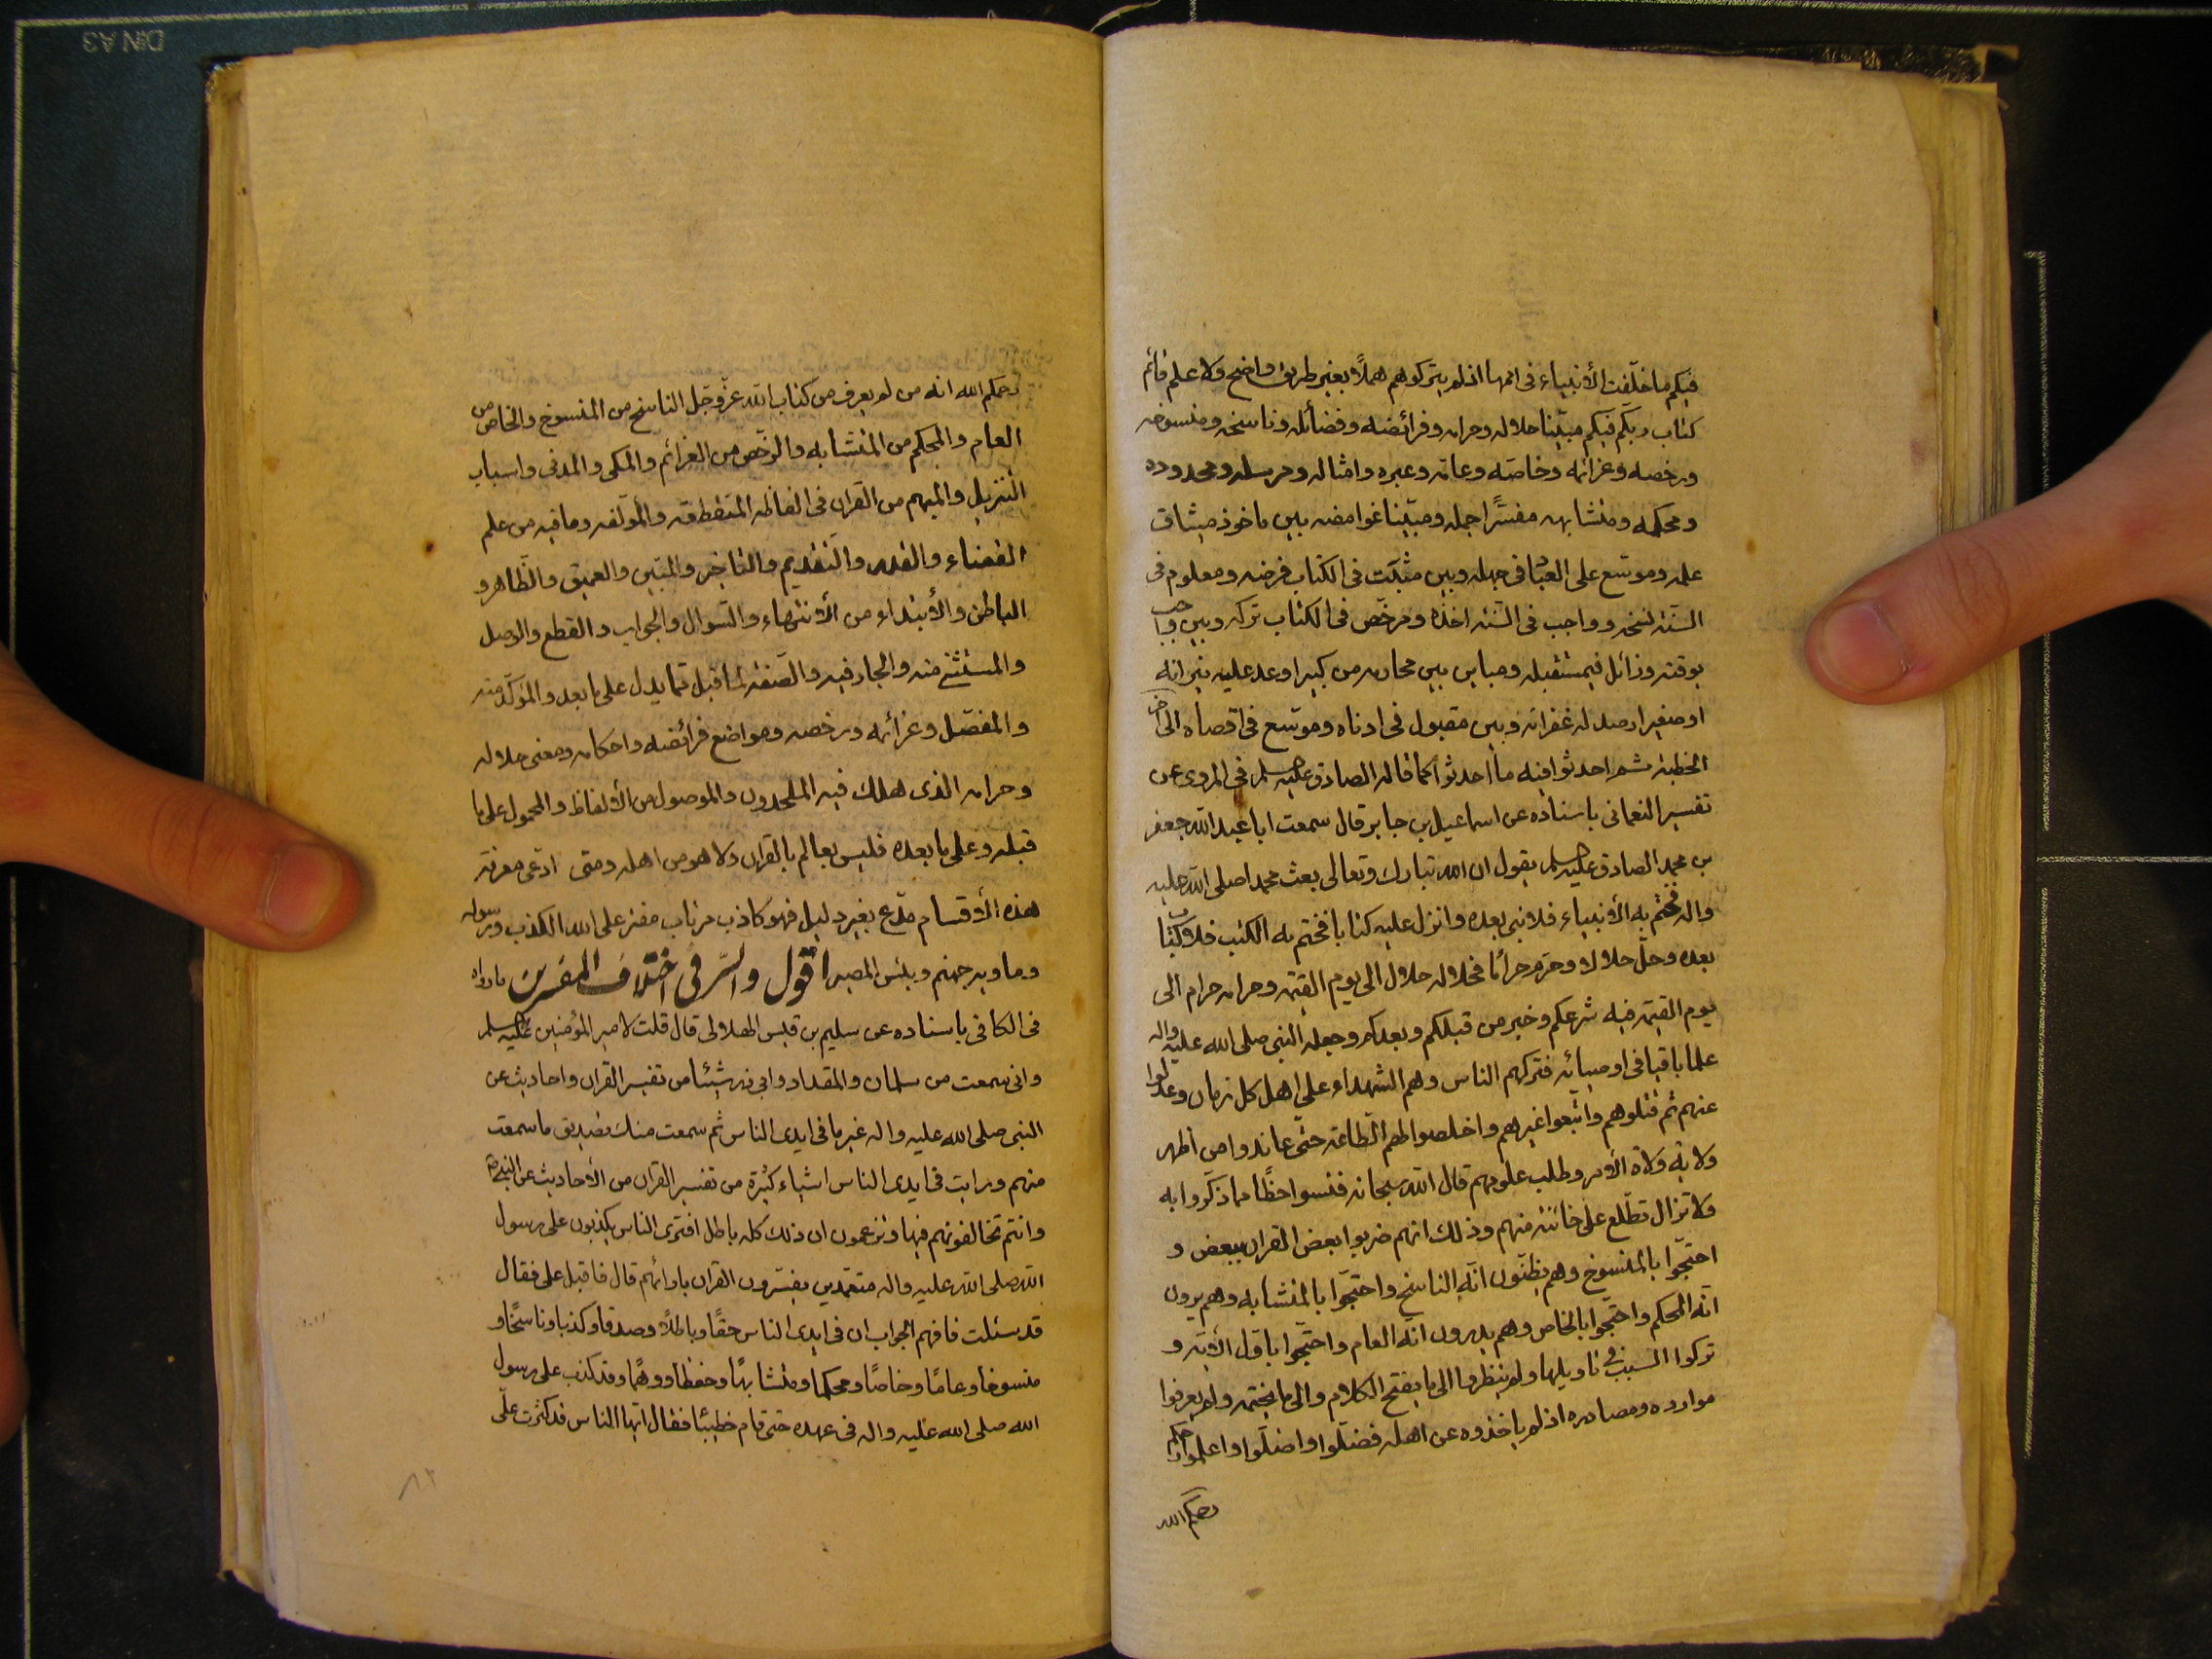 فيكم ما خلّفت الأنبياء في اممها اذ لم يتركوهم هملاً بغير طريق واضح ولا علم قائم
كتاب ربكم فيكم مبيّنا حلاله وحرامه وفرائضه وفضائله وناسخه ومنسوخه
ورخصه وعزائمه وخاصّه وعامّه وعبره وامثاله ومرسله ومحدوده
ومحكمه ومتشابهه مفسّرًا جمله ومبيّنا غوامضه بين ماخوذ ميثاق
علمه وموسّع على العباد في جهله وبين مثبت في الكتاب فرضه ومعلوم في
السنّة نسخه وواجب في السّنة اخذه ومرخّص في الكتاب تركه وبين واجب
بوقته وزائل في مستقبله ومباين بين محارمه من كبير اوعد عليه نيرانه
او صغير ارصد له غفرانه وبين مقبول في ادناه وموسّع في اقصاه الى اخر
الخطبة ثم احدثوا فيه ما احدثوا كما قاله الصادق عليه السلم في المروى عن
تفسير النعمانى باسناده عن اسماعيل بن جابر قال سمعت ابا عبد الله جعفر
بن محمد الصادق عليه السلم يقول ان الله تبارك وتعالى بعث محمدا صلى الله عليه
واله فختم به الأنبياء فلا نبى بعده وانزل عليه كتابا فختم به الكتب فلا كتاب
بعده وحلّ حلالا وحرّم حرامًا فحلاله حلال الى يوم القيمة وحرامه حرام الى
يوم القيمة فيه شرعكم وخبر من قبلكم وبعدكم وجعله النبى صلى الله عليه واله
علما باقيا في اوصيائه فتركهم الناس وهم الشهداء على اهل كل زمان وعدلوا
عنهم ثم قتلوهم واتّبعوا غيرهم واخلصوا لهم الطاعة حتى عاندوا من اظهر
ولاية ولاة الأمر وطلب علومهم قال الله سبحانه فنسوا حظًا مما ذكّروا به
ولا تزال تطّلع على خائنة منهم وذلك انهم ضربوا بعض القران ببعض و
احتجّوا بالمنسوخ وهم يظنّون انّه الناسخ واحتجّوا بالمتشابه وهم يرون
انّه المحكم واحتجّوا بالخاص وهم يدرون انّه العام واحتجّوا باوّل الأية و
تركوا السبب في تاويلها ولم ينظروا الى ما يفتح الكلام والى ما يختمه ولم يعرفوا
موارده ومصادره اذ لم ياخذوه عن اهله فضلّوا واضلّوا واعلموا
رحمكم الله
رحمكم الله انه من لم يعرف من كتاب الله عزّ وجلّ الناسخ من المنسوخ والخاص من
العام والمحكم من المتشابه والرخص من العزائم والمكى والمدنى واسباب
التنزيل والمبهم من القران في الفاظه المنقطعة والمؤلّفة وما فيه من علم
القضاء والقدر والتقديم والتاخير والمبيّن والعميق والظّاهر و
الباطن والأبتداء من الأنتهاء والسّوال والجواب والقطع والوصل
والمستثنى منه والجار فيه والصّفة لما قبل مما يدل على ما بعد والمؤكّد منه
والمفصّل وعزائمه ورخصه ومواضع فرائضه واحكامه ومعنى حلاله
وحرامه الذى هلك فيه الملحدون والموصول من الألفاظ والمحمول على ما
قبله وعلى ما بعده فليس بعالم بالقران ولا هو من اهله ومتى ادعى معرفة
هذه الأقسام مدّع بغير دليل فهو كاذب مرتاب مفتر على الله الكذب ورسوله
وماويه جهنم وبئس المصير اقول والسّر في اختلاف المفسرين ما رواه
في الكافى باسناده عن سليم بن قيس الهلالى قال قلت لامير المؤمنين عليه السلم
وانى سمعت من سلمان والمقداد وابي ذر شيئا من تفسير القران واحاديث عن
النبى صلى الله عليه واله غير ما في ايدى الناس ثم سمعت منك تصديق ما سمعت
منهم ورايت في ايدى الناس اشياء كثيرة من تفسير القران من الأحاديث عن النبي ص
وانتم تخالفونهم فيها وتزعمون ان ذلك كله باطل افترى الناس يكذبون على رسول
الله صلى الله عليه واله متعمّدين يفسّرون القران بارائهم قال فاقبل علىّ فقال
قد سئلت فافهم الجواب ان في ايدى الناس حقا وباطلاً وصدقا وكذبا وناسخًا و
منسوخا وعامّا وخاصّا ومحكما ومتشابهًا وحفظا ووهمًا وقد كذب على رسول
الله صلى الله عليه واله في عهده حتى قام خطيبًا فقال ايّها الناس قد كثرت علىّ
DIN A3